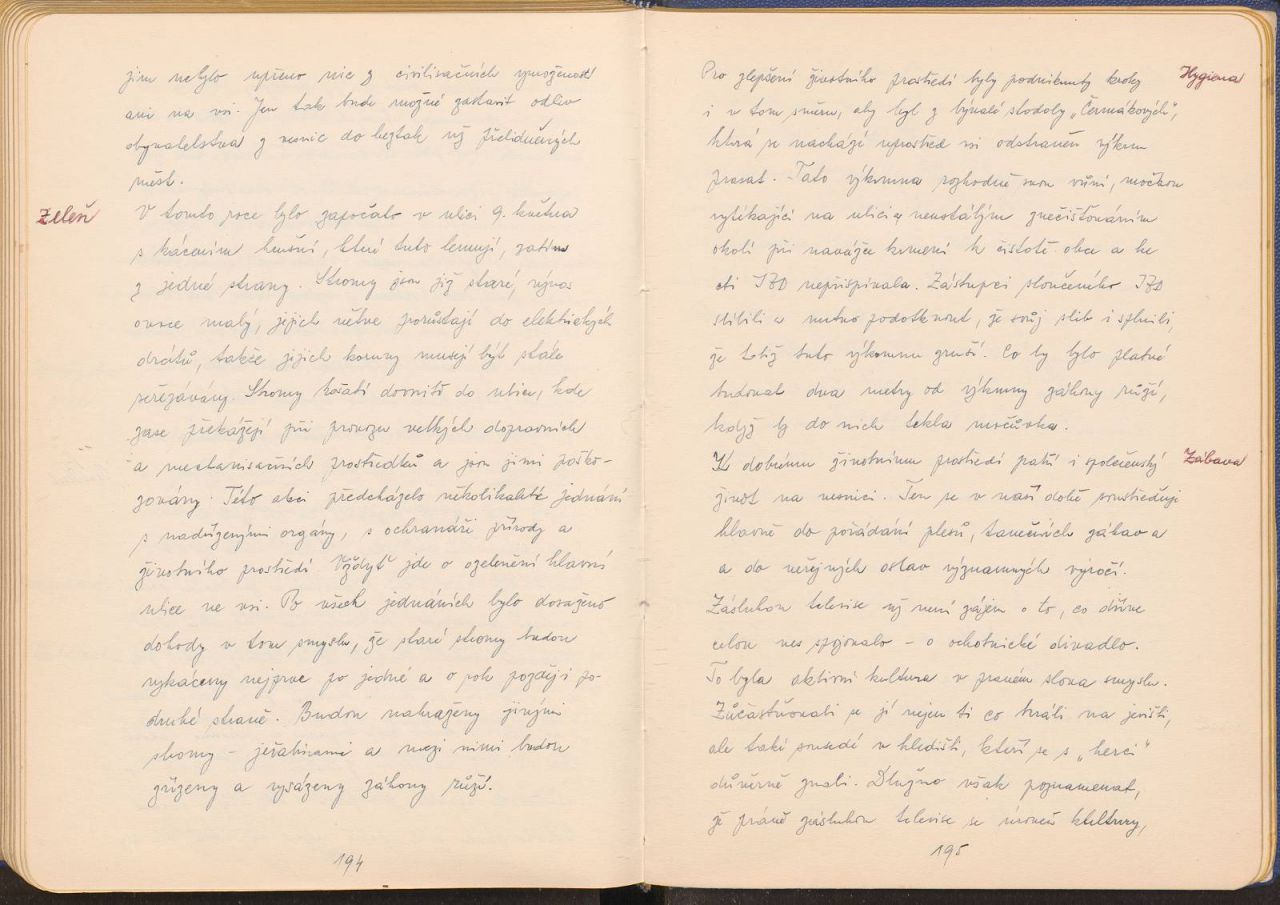 jim nebylo upřeno nic z civilisačních vymožeností
ani na vsi. Jen tak bude možné zastavit odliv
obyvatelstva z vesnic do beztak už přelidněných
měst.
Zeleň
V tomto roce bylo započato v ulici 9. května
s kácením hrušní, které tuto lemují, zatím
z jedné strany. Stromy jsou již staré, výnos
ovoce malý, jejich větve porůstají do elektrických
drátů, takže jejich koruny musejí být stále
seřezávány. Stromy košatí dovnitř do ulice, kde
zase překážejí při provozu velkých dopravních
a mechanisačních prostředků a jsou jimi poško-
zovány. Této akci předcházelo několikaleté jednání
s nadřízenými orgány, s ochranáři přírody a
životního prostředí. Vždyť jde o ozelenění hlavní
ulice ve vsi. Po všech jednáních bylo dosaženo
dohody v tom smyslu, že staré stromy budou
vykáceny nejprve po jedné a o rok později po
druhé straně. Budou nahrazeny jinými
stromy - jeřabinami a mezi nimi budou
zřízeny a vysázeny záhony růží.
194
Hygiena
Pro zlepšení životního prostředí byly podniknuty kroky
i v tom směru, aby byl z bývalé stodoly „Čermákových",
která se nachází uprostřed vsi odstraněn výkrm
prasat. Tato výkrmna rozhodně svou vůní, močkou
vytékající na ulici a neustálým znečišťováním
okolí při navážce krmení k čistotě obce a ke
cti JZD nepřispívala. Zástupci sloučeného JZD
slíbili a nutno podotknout, že svůj slib i splnili,
že totiž tuto výkrmnu zruší. Co by bylo platné
budovat dva metry od výkrmny záhony růží,
když by do nich tekla močůvka.
Zábava
K dobrému životnímu prostředí patří i společenský
život na vesnici. Ten se v naší době soustřeďuje
hlavně do pořádání plesů, tanečních zábav a
a do veřejných oslav významných výročí.
Zásluhou televise už není zájem o to, co dříve
celou ves spojovalo - o ochotnické divadlo.
To byla aktivní kultura v pravém slova smyslu.
Zúčastňovali se jí nejen ti co hráli na jevišti,
ale také sousedé v hledišti, kteří se s „herci"
důvěrně znali. Dlužno však poznamenat,
že právě zásluhou televise se úroveň kultury,
195